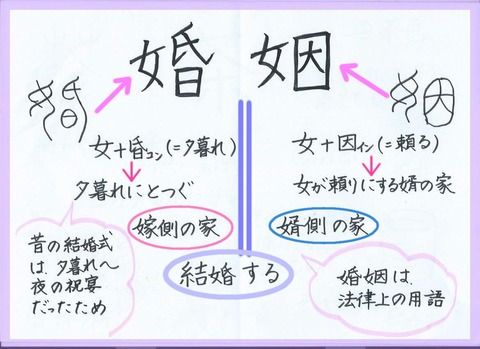 婚 姻
婚
姻
女+昏コン(=夕暮れ)
夕暮れにとつぐ
嫁側の家
昔の結婚式
は、夕暮れ〜
夜の祝宴
だったため
女+因イン(=頼る)
女が頼りにする婿の家
婿側の家
結婚する
婚姻は、
法律上の用語